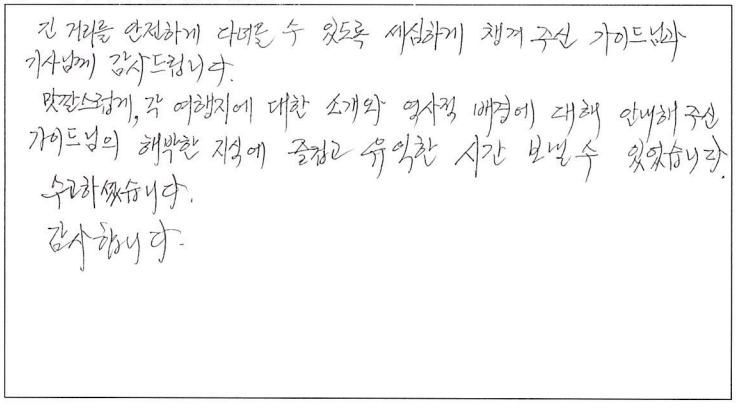 긴 거리를 안전하게 다녀올 수 있도록 세심하게 챙겨 주신 가이드님과
기사님께 감사드립니다.
맛깔스럽게, 각 여행지에 대한 소개와 역사적 배경에 대해 안내해 주신
가이드님의 해박한 지식에 즐겁고 유익한 시간 보낼 수 있었습니다.
수고하셨습니다.
감사합니다.